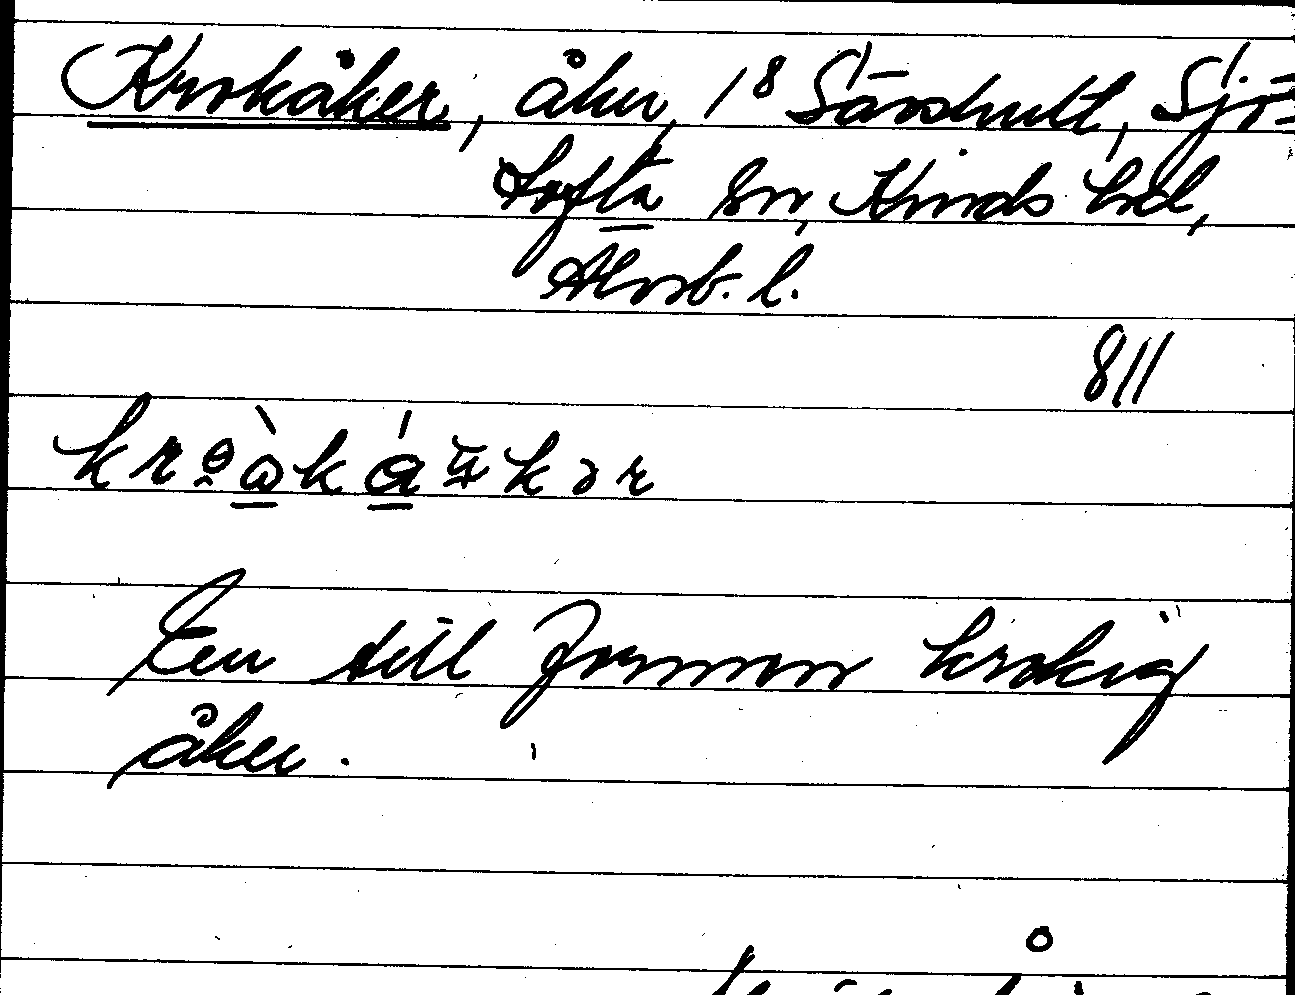 Krokåker, åker, 1⁸ Sävshult, Sjö=
tofta sn, Kinds hd,
Älvsb. l.
811
En till formen krokig
åker.